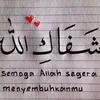 شَفَاكِ اللهُ
semoga Allah segera
menyembuhkanmu